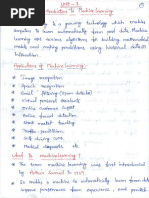 UNIT - I
Introduction to Machine Learning:
Machine Learning is a growing technology which enables
computers to learn automatically from past data. Machine
Learning uses various algorithms for building mathematical
models and making predictions using historical data or
information.
Applications of Machine Learning:-
Image recognition
Speech recognition
Email filtering (spam detector)
Virtual personal assistants
Online customer support
Online fraud detection
Stock market trading
Traffic prediction
Self-driving cars
Medical diagnosis etc
What is machine learning?
The term machine learning was first introduced
by Arthur Samuel in 1959.
It enables a machine to automatically learn from data
improve performance from experience, and predict